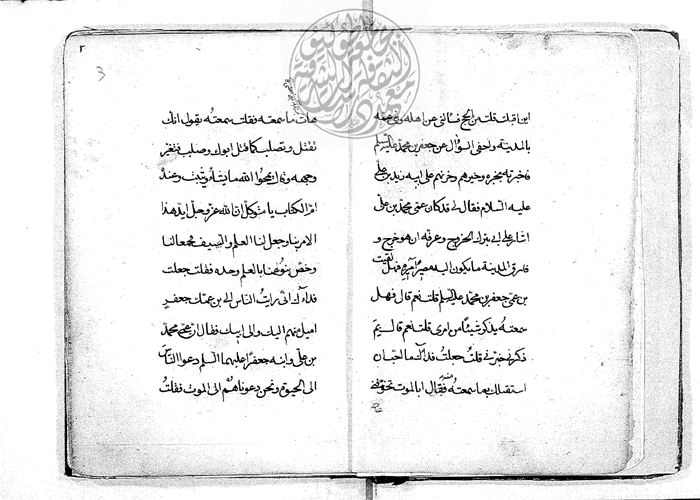 اين اقبلت قلت من الحج فسألني عن اهله وبني عمه
بالمدينة واحفى السؤال عن جعفر بن محمد عليه السلم
فخبرته بخبره وخبرهم وحزنهم على ابيه زيد بن علي
عليه السلام فقال لي قد كان عمي محمد بن علي
اشار على ابي بترك الخروج وعرفه ان هو خرج و
فارق المدينة ما يكون اليه مصير امره فهل لقيت
بن عمي جعفر بن محمد عليه السلم قلت نعم قال فهل
سمعته يذكر شيئا من امري قلت نعم قال بم
ذكرني خبرني قلت جعلت فداك ما احب ان
استقبلك بما سمعته منه فقال ابالموت تخوفني
٢
3
هات ما سمعته فقلت سمعته يقول انك
تقتل وتصلب كما قتل ابوك وصلب فتغير
وجهه وقال يمحوا الله ما يشاء ويثبت وعنده
ام الكتاب يا متوكل ان الله عز وجل ايد هذا
الامر بنا وجعل لنا العلم والسيف فجمعا لنا
وخص بنو عمنا بالعلم وحده فقلت جعلت
فداءك اني رايت الناس الى بن عمك جعفر
اميل منهم اليك والى ابيك فقال ان عمي محمد
بن علي وابنه جعفرا عليهما السلم دعوا الناس
الى الحيوة ونحن دعوناهم الى الموت فقلت